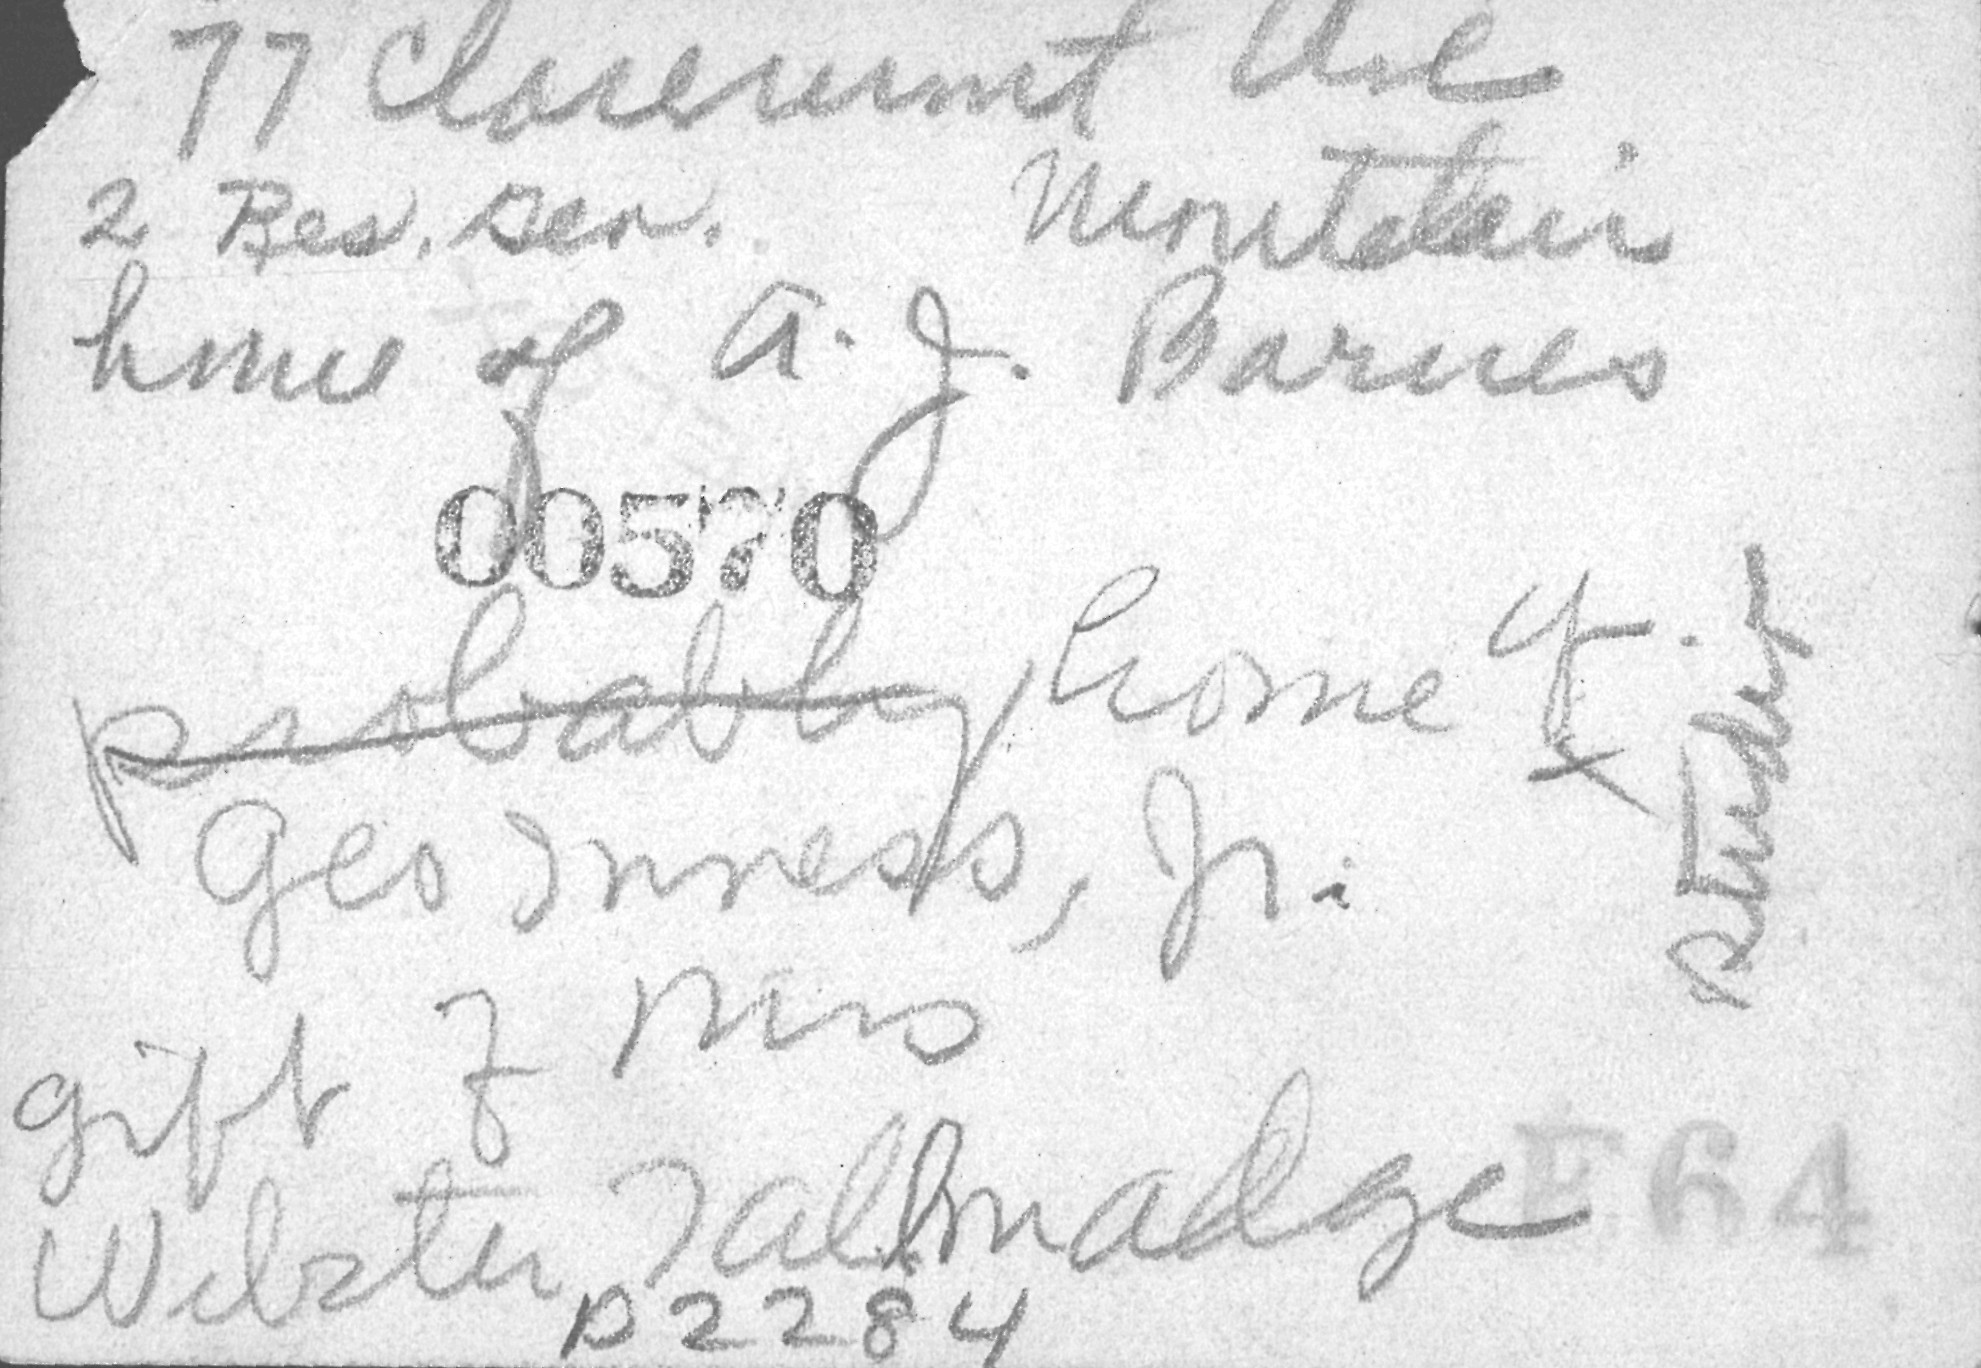 77 Claremont Ave
2 Res. Gen. Montclair
home of A. J. Barnes
00570
probably home of
Geo Inness, Jr.
gift of Mrs
Webster Tallmadge
E64
p2284